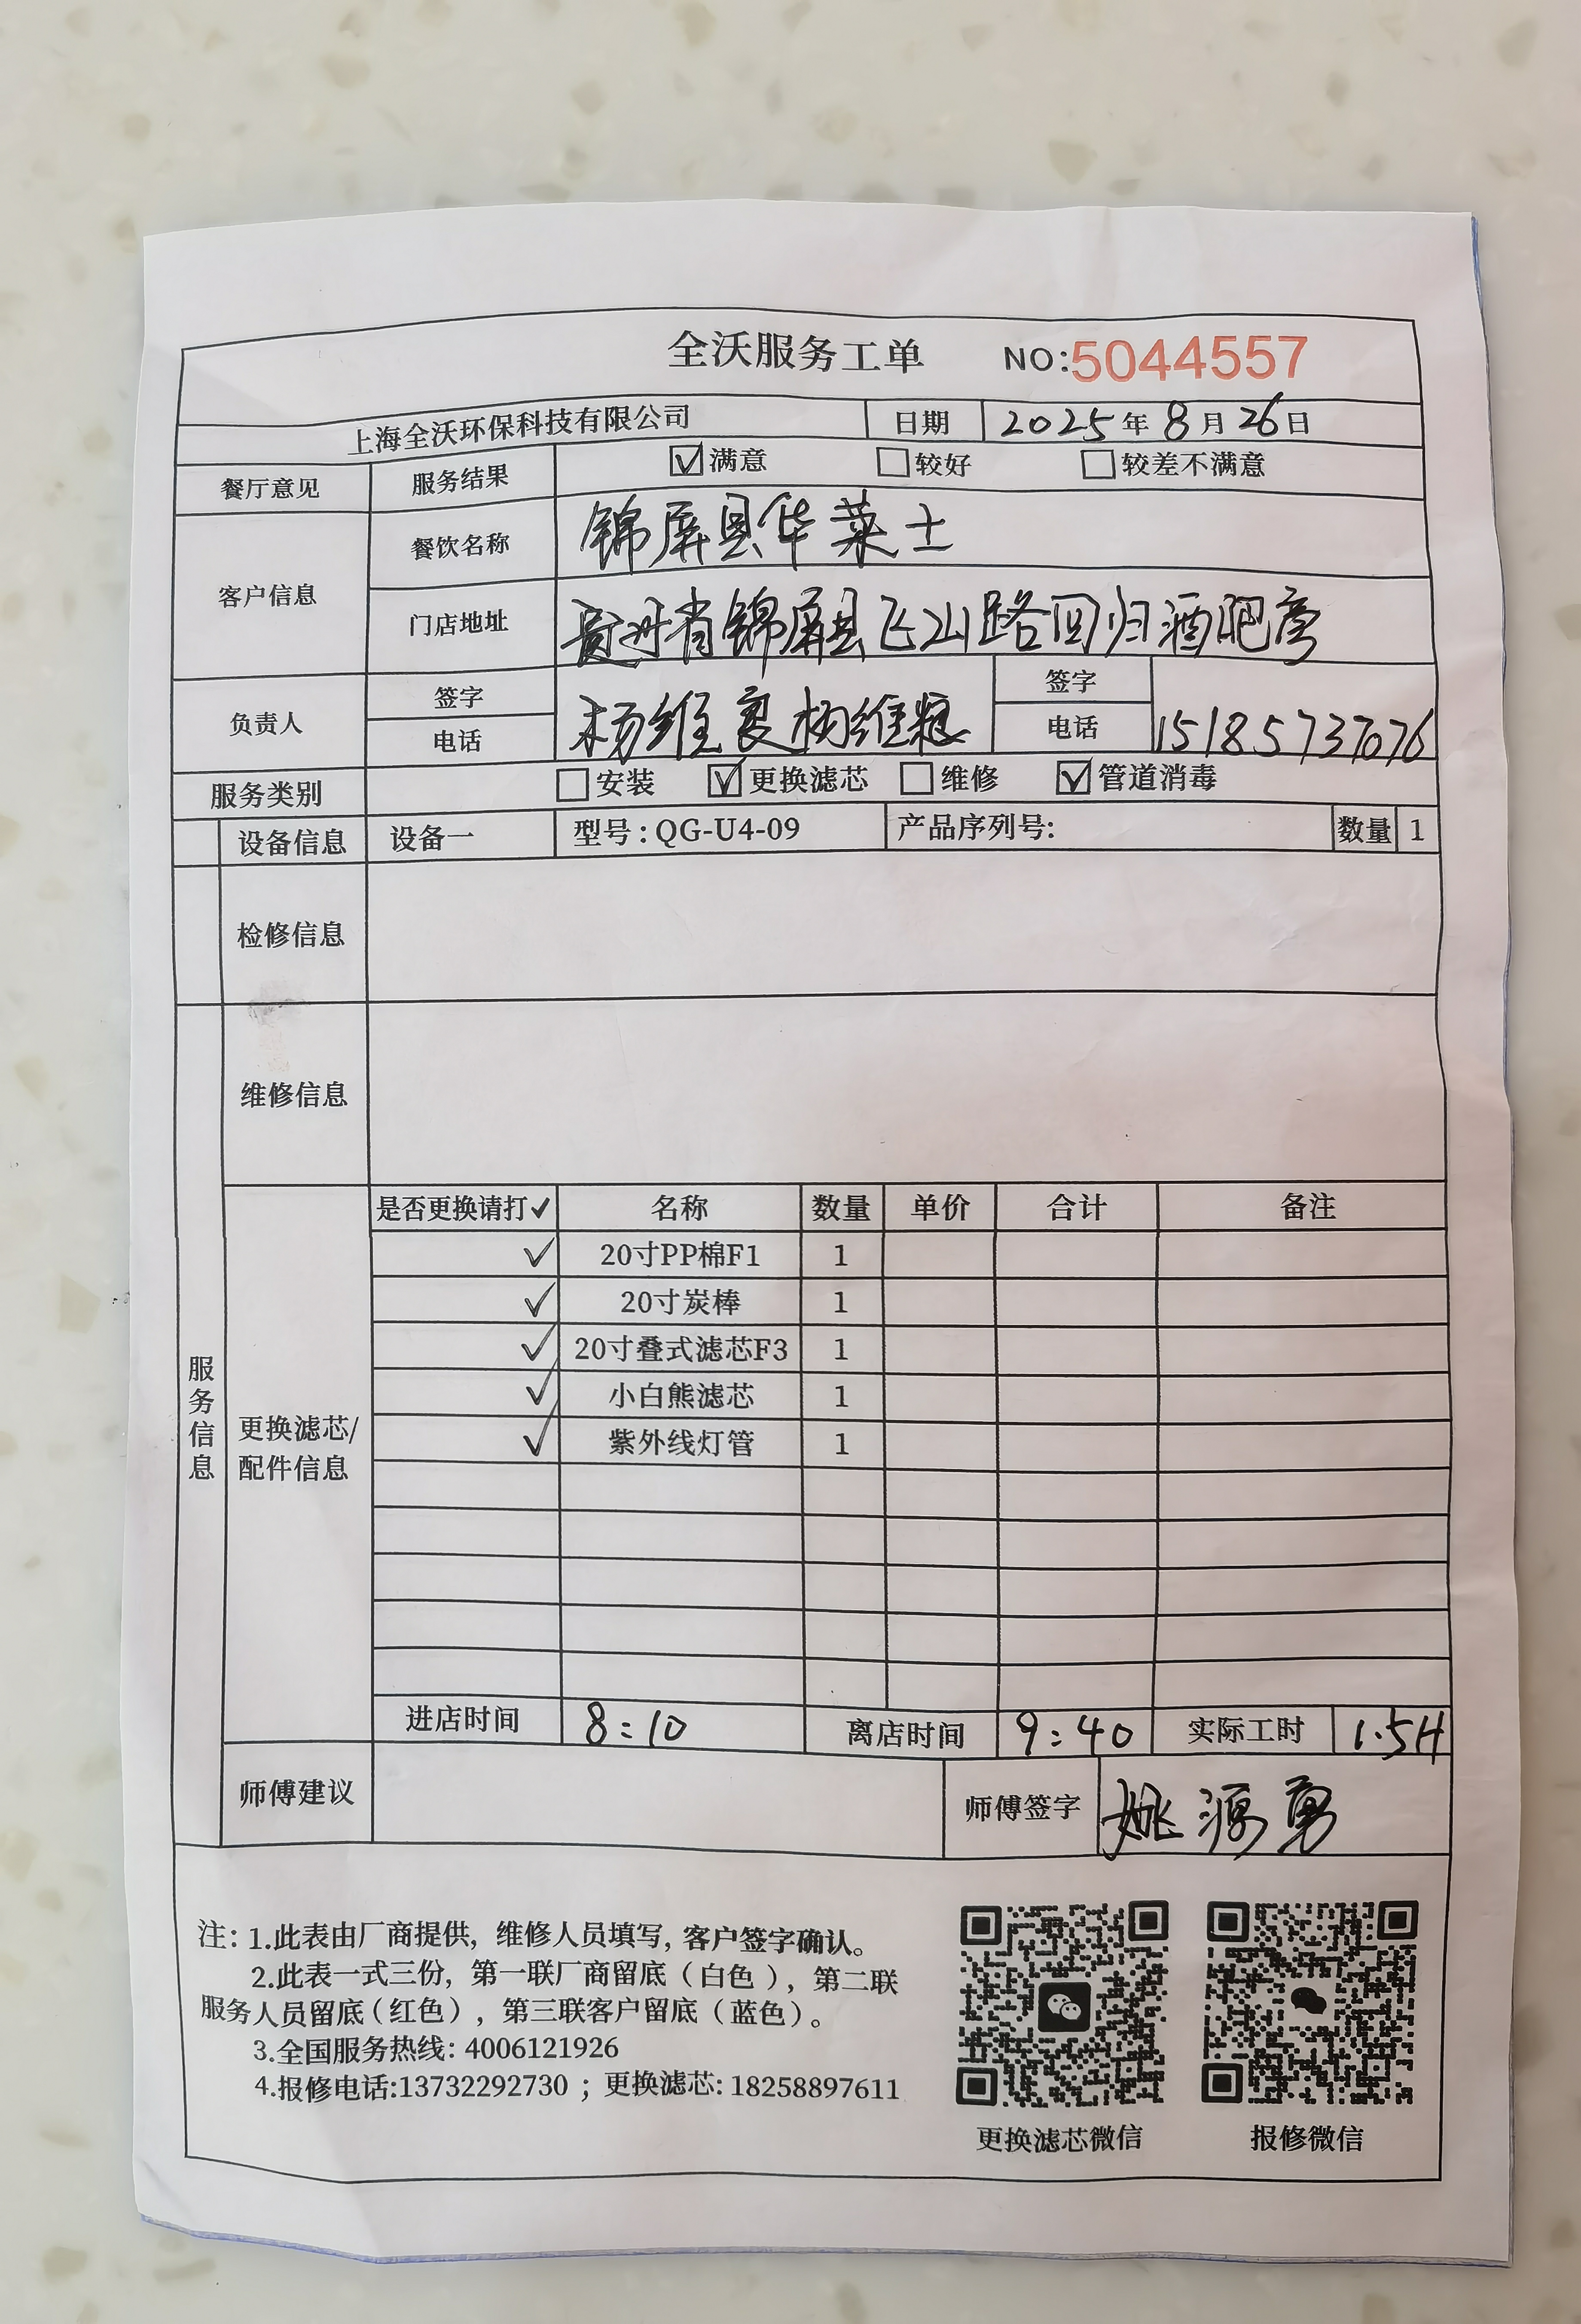 全沃服务工单 NO:5044557
上海全沃环保科技有限公司 日期 2025年8月26日
餐厅意见 服务结果 ☑满意 □较好 □较差不满意
客户信息 餐饮名称 锦屏县华莱士
门店地址 贵州省锦屏县飞山路回归酒吧旁
负责人 签字 电话 杨维良 杨维 签字 电话 15185737076
服务类别 □安装 ☑更换滤芯 □维修 ☑管道消毒
设备信息 设备一 型号:QG-U4-09 产品序列号: 数量 1
检修信息
维修信息
服务信息
更换滤芯/配件信息
是否更换请打✓ 名称 数量 单价 合计 备注
✓ 20寸PP棉F1 1
✓ 20寸炭棒 1
✓ 20寸叠式滤芯F3 1
✓ 小白熊滤芯 1
✓ 紫外线灯管 1
进店时间 8:10 离店时间 9:40 实际工时 1.5H
师傅建议 师傅签字 姚源勇
注: 1.此表由厂商提供, 维修人员填写, 客户签字确认。
2.此表一式三份, 第一联厂商留底(白色), 第二联
服务人员留底(红色), 第三联客户留底(蓝色)。
3.全国服务热线: 4006121926
4.报修电话:13732292730 ; 更换滤芯: 18258897611
更换滤芯微信 报修微信